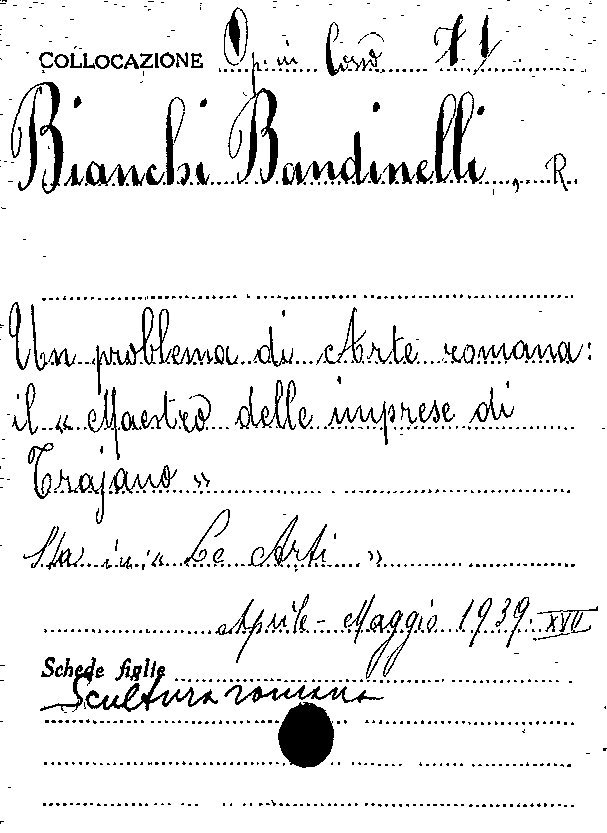 COLLOCAZIONE Op. in Corso 71
Bianchi Bandinelli, R.
Un problema di Arte romana:
il « Maestro delle imprese di
Trajano »
Sta in: « Le Arti »
Aprile - Maggio 1939 - XVII
Schede figlie
Scultura romana